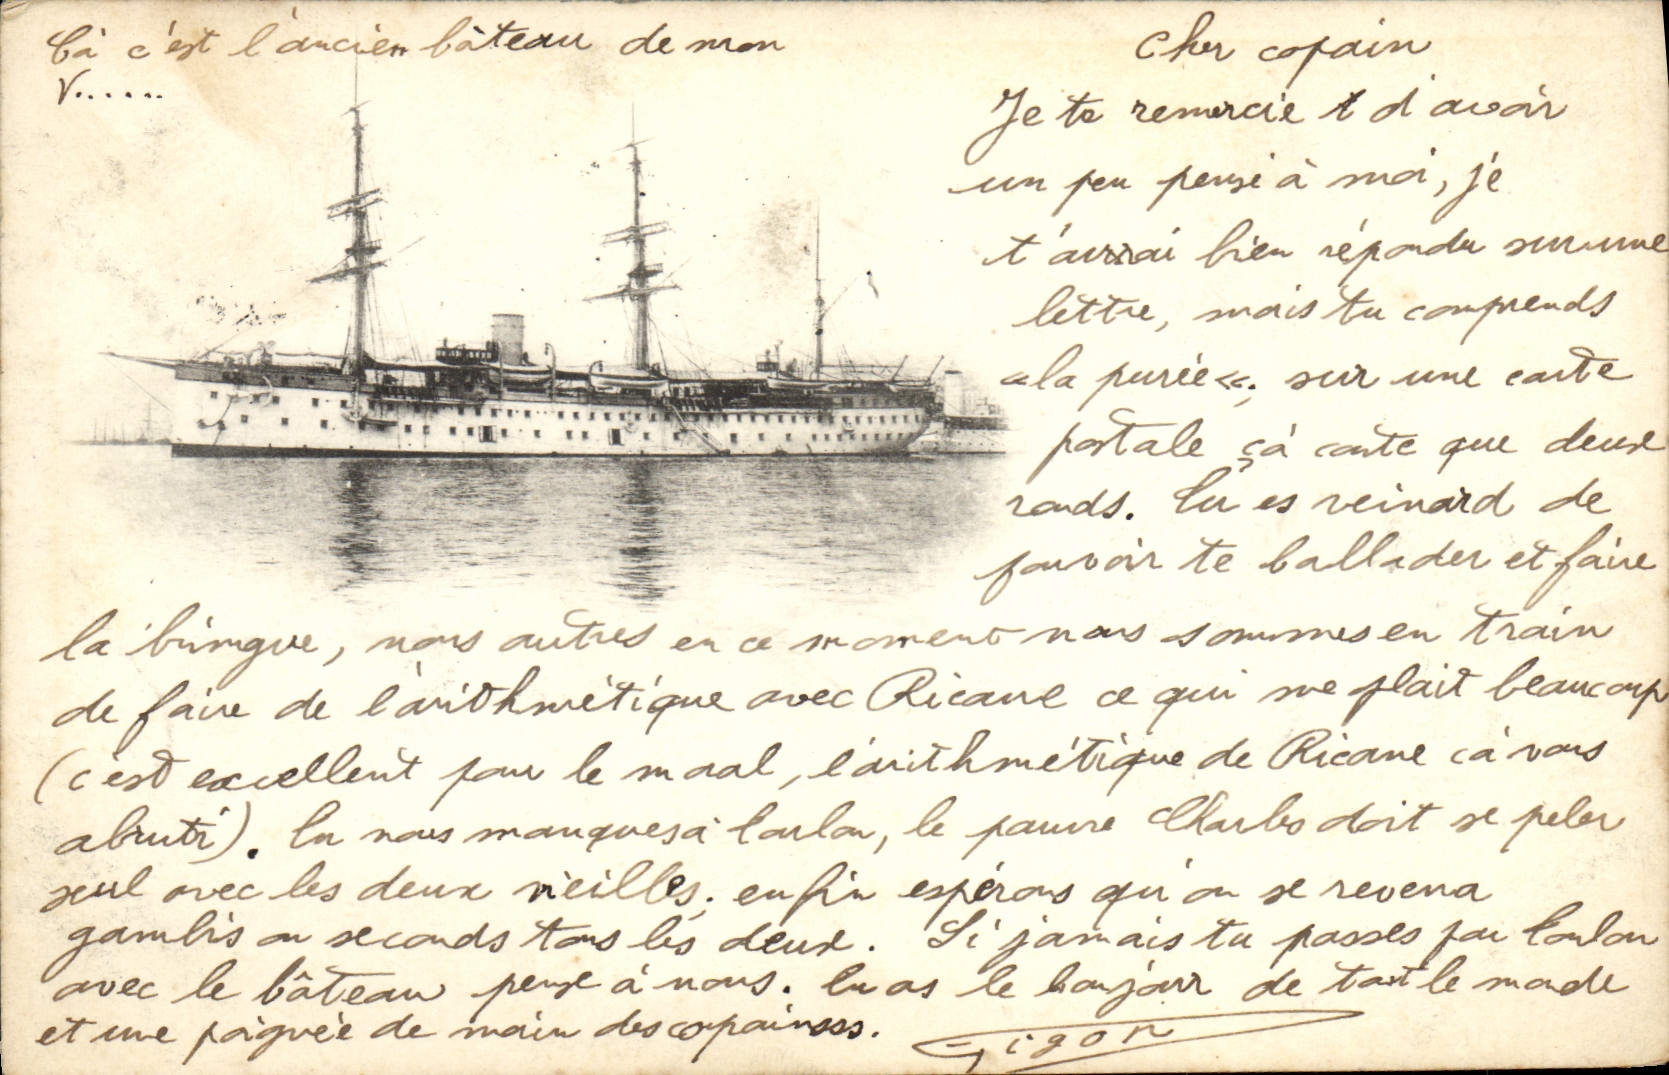 Çà c'est l'ancien bâteau de mon
V.....
Cher copain
Je te remercie d'avoir
un peu pensé à moi, je
t'aurrai bien répondu sur une
lettre, mais tu comprends
"la purée", sur une carte
postale çà coute que deux
ronds. Tu es veinard de
pouvoir te ballader et faire
la bringue, nous autres en ce moment nous sommes en train
de faire de l'arithmétique avec Ricane ce qui me plait beaucoup
(c'est excellent pour le moral, l'arithmétique de Ricane çà vous
abruti). Tu nous manques à Toulon, le pauvre Charles doit se peler
seul avec les deux vieilles, enfin espérons qu'on se reverra
gambis ou seconds tous les deux. Si jamais tu passes par Toulon
avec le bâteau pense à nous. Tu as le bonjour de tout le monde
et une poignée de main des copainsss.
Gigon